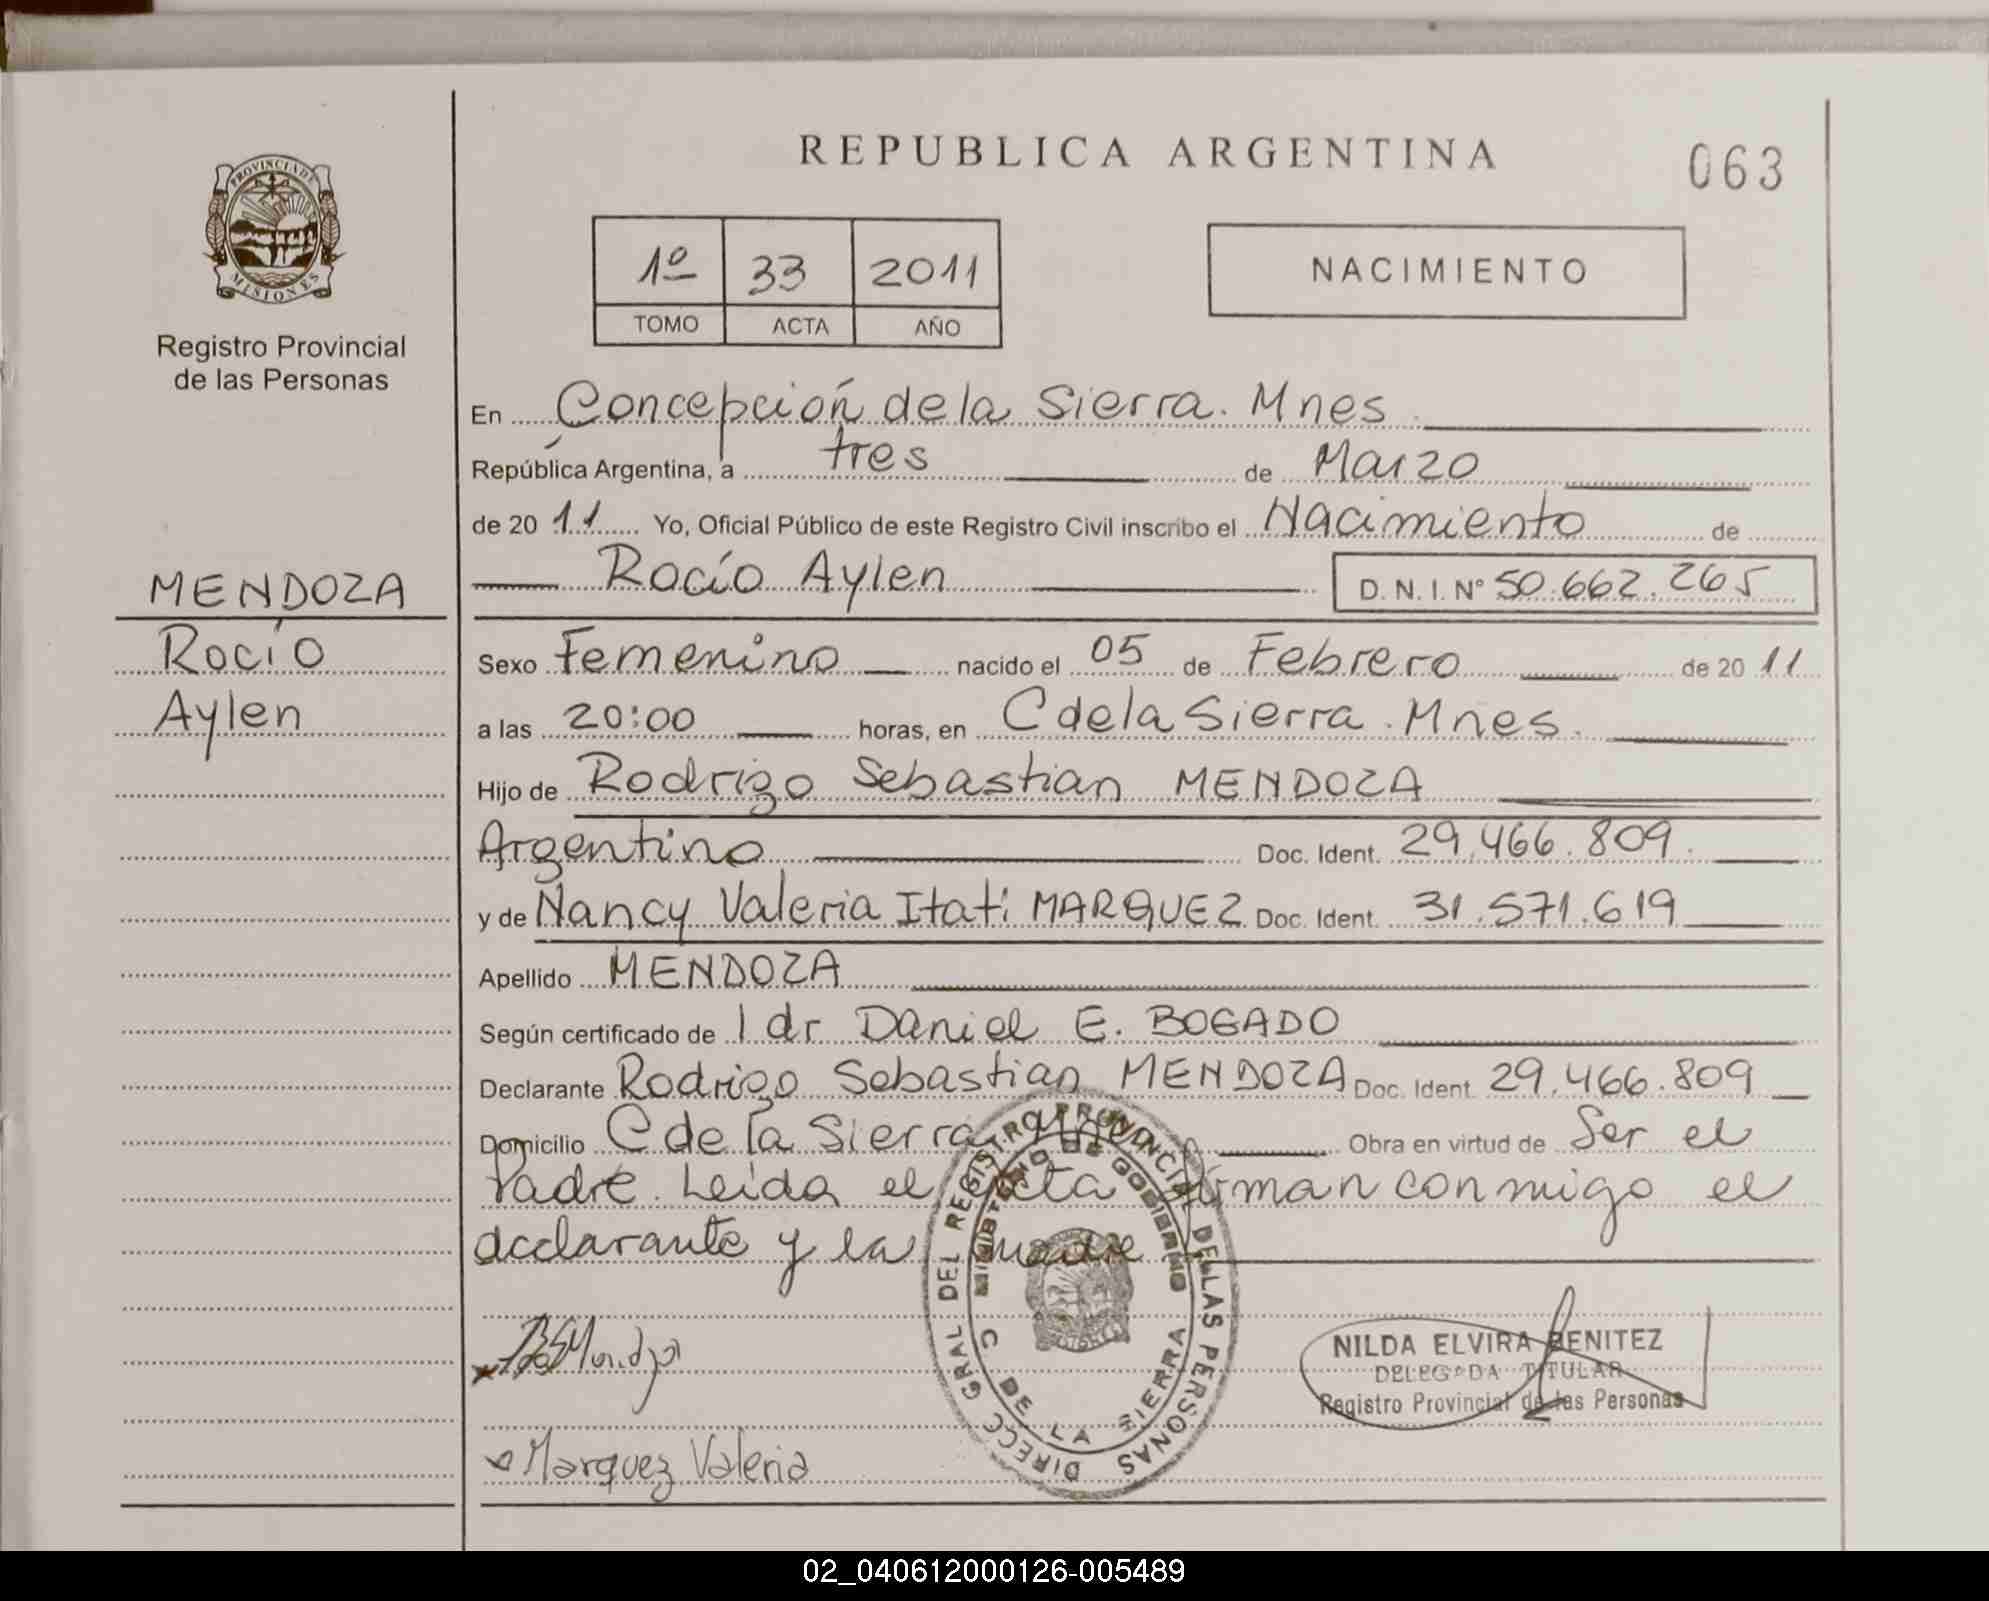 REPUBLICA ARGENTINA
063
PROVINCIA DE
MISIONES
Registro Provincial
de las Personas
1º 33 2011
TOMO ACTA AÑO
NACIMIENTO
En Concepción de la Sierra. Mnes
República Argentina, a tres de Marzo
de 2011 Yo, Oficial Público de este Registro Civil inscribo el Nacimiento de
Rocío Aylen D. N. I. Nº 50.662.265
MENDOZA
Rocío
Aylen
Sexo Femenino nacido el 05 de Febrero de 2011
a las 20:00 horas, en C de la Sierra. Mnes.
Hijo de Rodrigo Sebastian MENDOZA
Argentino Doc. Ident. 29.466.809.
y de Nancy Valeria Itati MARQUEZ Doc. Ident. 31.571.619
Apellido MENDOZA
Según certificado de 1 dr Daniel E. BOGADO
Declarante Rodrigo Sebastian MENDOZA Doc. Ident. 29.466.809
Domicilio C de la Sierra, Mnes Obra en virtud de Ser el
Padre. Leida el acta firman conmigo el
declarante y la madre
DIRECC GRAL DEL REGISTRO PROVINCIAL DE LAS PERSONAS
MINISTERIO DE GOBIERNO
C DE LA SIERRA
NILDA ELVIRA BENITEZ
DELEGADA TITULAR
Registro Provincial de las Personas
Marquez Valeria
02_040612000126-005489